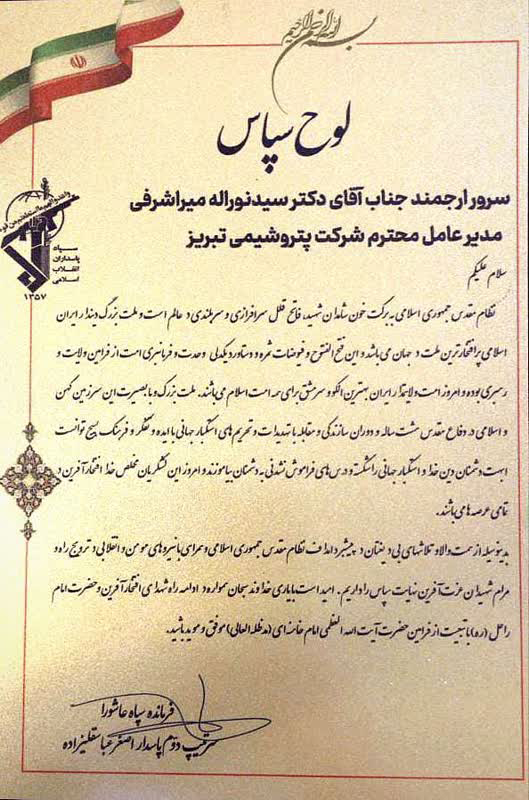 بسم الله الرحمن الرحیم
لوح سپاس
سرور ارجمند جناب آقای دکتر سیدنوراله میراشرفی
مدیر عامل محترم شرکت پتروشیمی تبریز
سپاه
پاسداران
انقلاب
اسلامی
۱۳۵۷
سلام علیکم
نظام مقدس جمهوری اسلامی به برکت خون شاهدان شهید، فاتح قلل سرافرازی و سربلندی در عالم است و ملت بزرگ دیندار ایران
اسلامی پرافتخارترین ملت در جهان می باشد و این فتح الفتوح و فیوضات ثمره و دستاورد یکدلی وحدت و فرمانبری امت از فرامین ولایت و
رهبری بوده و امروز امت ولایتمدار ایران بهترین الگو و سرمشق برای همه امت اسلام می باشند. ملت بزرگ و با بصیرت این سرزمین کهن
و اسلامی در دفاع مقدس هشت ساله و دوران سازندگی و مقابله با تهدیدات و تحریم های استکبار جهانی با ایده و تفکر و فرهنگ بسیج توانست
ابهت دشمنان دین خدا و استکبار جهانی را شکسته و درس های فراموش نشدنی به دشمنان بیاموزند و امروز این لشکریان مخلص خدا افتخار آفرین در
تمامی عرصه ها می باشند.
بدینوسیله از همت والا و تلاشهای بی دریغتان در پیشبرد اهداف نظام مقدس جمهوری اسلامی و همراهی با نیروهای مومن و انقلابی و ترویج راه و
مرام شهیدان عزت آفرین نهایت سپاس را داریم. امید است با یاری خداوند سبحان همواره در ادامه راه شهدای افتخار آفرین و حضرت امام
راحل (ره) با تبعیت از فرامین حضرت آیت الله العظمی امام خامنه ای (مد ظله العالی) موفق و موید باشید.
فرمانده سپاه عاشورا
سرتیپ دوم پاسدار اصغر عباسقلیزاده